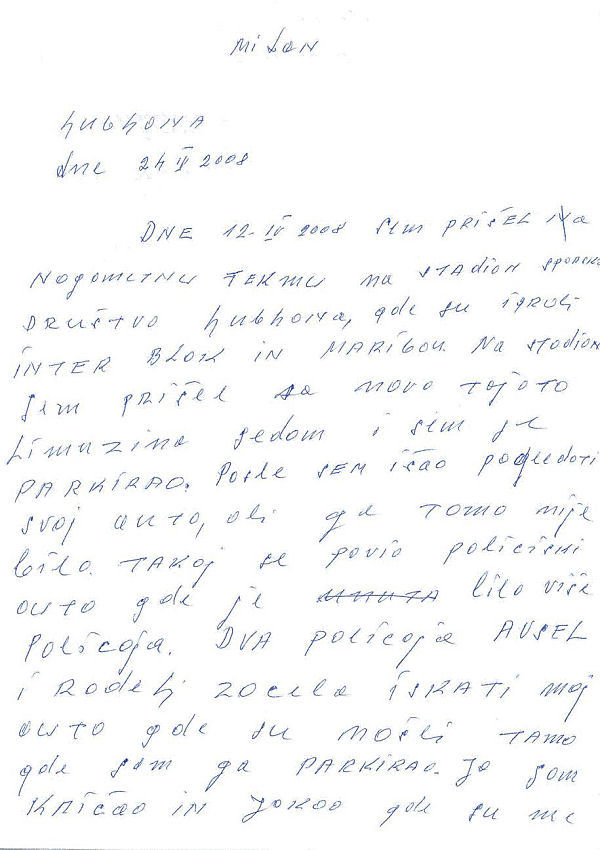 Milan
Ljubljana
dne 24 IV 2008
DNE 12. IV 2008 sem PRIŠEL Na
NogometNU TEKMU na STADION SPORTSK
DRUŠTVO Ljubljana, gde su igrali
INTER BLOK IN MARIBOR Na stadion
sem PRIŠEL sa novo tojoto
Limuzina sedom i sem se
PARKIRAO. Posle SEM išao pogledati
svoj auto, ali ga TAMO nije
bilo. TAKOJ se javio policiski
auto gde je bilo više
Policaja. DVA policaja AVSEL
i Rodelj zacela ISKATI moj
auto gde su našli TAMO
gde sem ga PARKIRAO. Ja sam
KRIČAO IN JOKAO gde su me